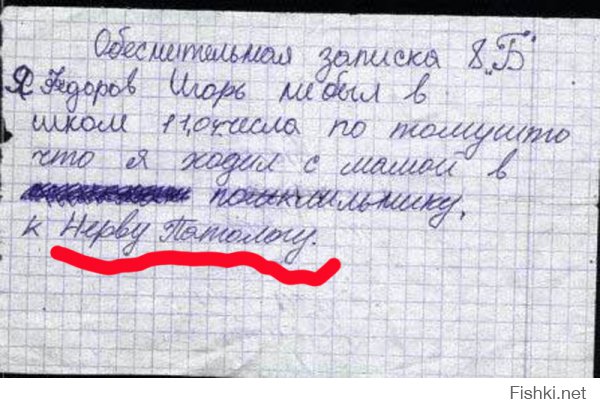 Обеснительная записка 8 "Б"
Я Федоров Игорь небыл в
школ 11,04 числа по томушто
что я ходил с мамой в
к Нерву Патологу.
Fishki.net